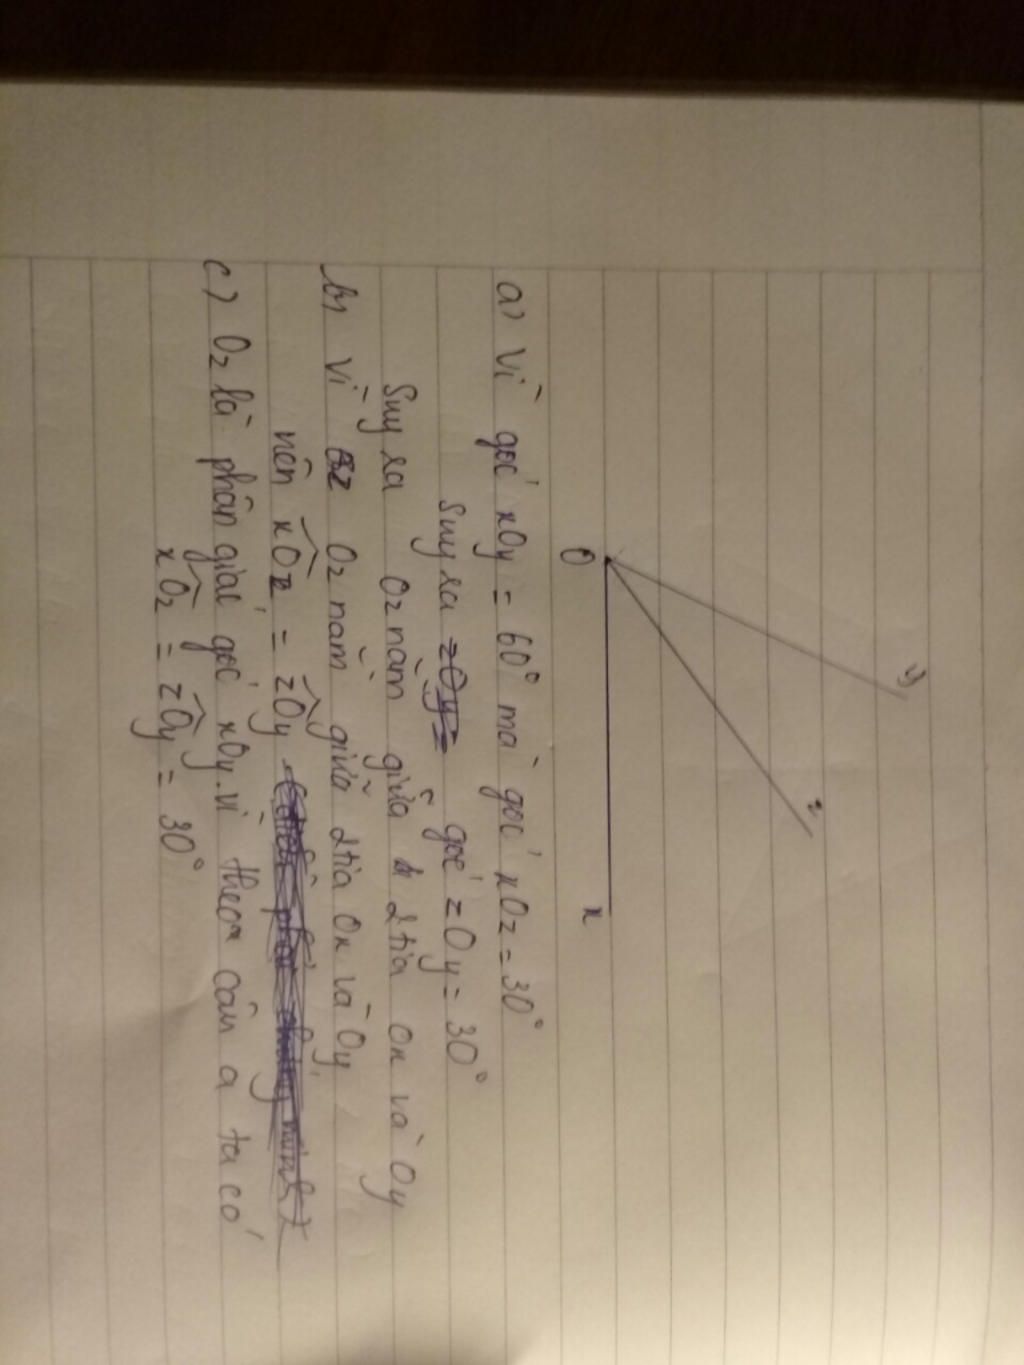 y
z
O
x
a) Vì góc xOy = 60° mà góc xOz = 30°
Suy ra zOy = góc zOy = 30°
Suy ra Oz nằm giữa 2 tia Ox và Oy
b) Vì Oz nằm giữa 2 tia Ox và Oy
nên xOz = zOy
c) Oz là phân giác góc xOy. vì theo câu a ta có
xOz = zOy = 30°